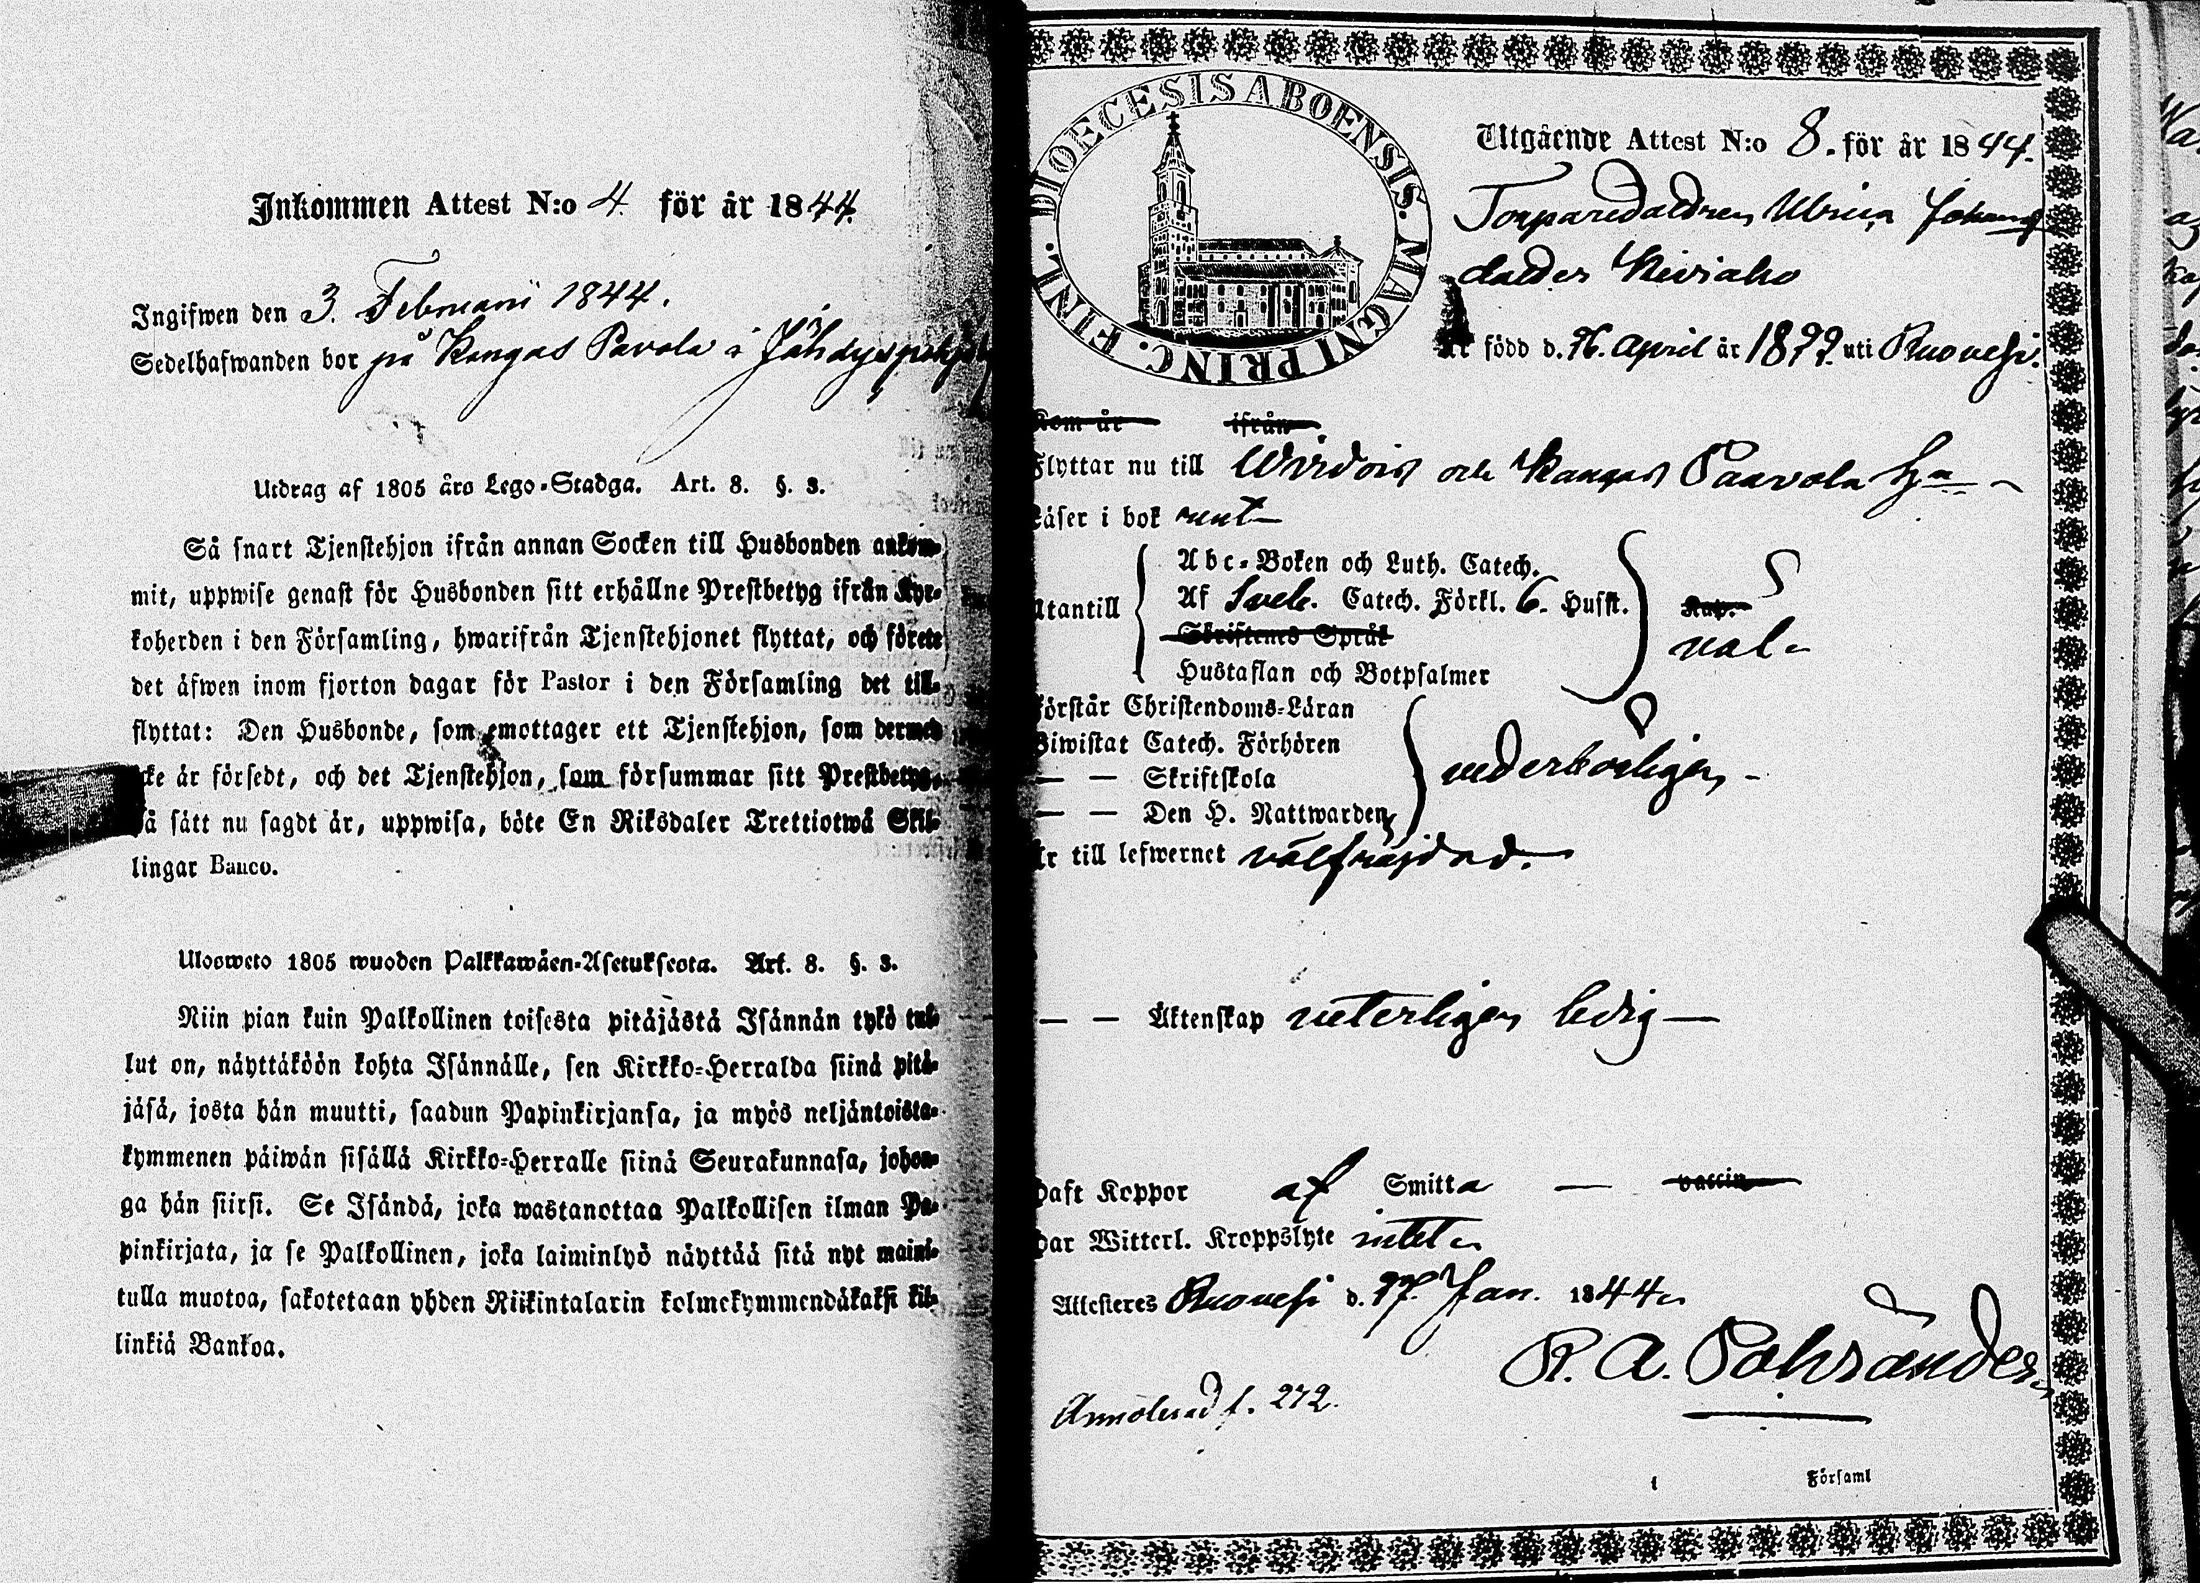 Inkommen Attest N:o 4. för år 1844.
Ingifwen den 3. Februari 1844.
Sedelhafwanden bor på Kangas Pavola i
Utdrag af 1805 åro Lego-Stadga. Art. 8. §. 3.
Så snart Tjenstehjon ifrån annan Socken till Husbonden ankom-
mit, uppwise genast för Husbonden sitt erhållne Prestbetyg ifrån Kyr-
koherden i den Församling, hwarifrån Tjenstehjonet flyttat, och förete
det äfwen inom fjorton dagar för Pastor i den Församling det till-
flyttat: Den Husbonde, som emottager ett Tjenstehjon, som dermed
icke är försedt, och det Tjenstehjon, som försummar sitt Prestbetyg,
på sätt nu sagdt är, uppwisa, böte En Riksdaler Trettiotwå Skil-
lingar Banco.
Ulosweto 1805 wuoden Palkkawäen-Asetuksesta. Art. 8. §. 3.
Niin pian kuin Palkollinen toisesta pitäjästä Isännän tykö tul-
lut on, näyttäköön kohta Isännälle, sen Kirkko-Herralda siinä pitä-
jäsä, josta hän muutti, saadun Papinkirjansa, ja myös neljäntoista-
kymmenen päiwän sisällä Kirkko-Herralle siinä Seurakunnasa, johon-
ga hän siirsi. Se Isändä, joka wastanottaa Palkollisen ilman Pa-
pinkirjata, ja se Palkollinen, joka laiminlyö näyttää sitä nyt maini-
tulla muotoa, sakotetaan yhden Riikintalarin kolmekymmendäkaksi kil-
linkiä Bankoa.
DIOECESIS ABOENSIS. MAGNI PRINC. FINL.
Utgående Attest N:o 8. för år 1844.
Torparedottren Ulrica Johans
dotter Kiviaho
Är född d. 26. April år 1822. uti Ruovesi.
Kom år ifrån
Flyttar nu till Wirdois och Kangas Paavola
Läser i bok rent
Abc-Boken och Luth. Catech.
Utantill Af Sveb. Catech. Förkl. 6. Husst. Kap.
Skriftenes Språk väl
Hustaflan och Botpsalmer
Förstår Christendoms-Läran
Biwistat Catech. Förhören
— — Skriftskola vederbörligen
— — Den H. Nattwarden
Är till lefwernet välfräjdad.
— — Äktenskap veterligen ledig
Haft Koppor af Smitta — vaccin
Har Witterl. Kroppslyte intet
Attesteres Ruovesi d. 27. Jan. 1844
R. A. Pohrander
Annoterad f. 272.
Församl